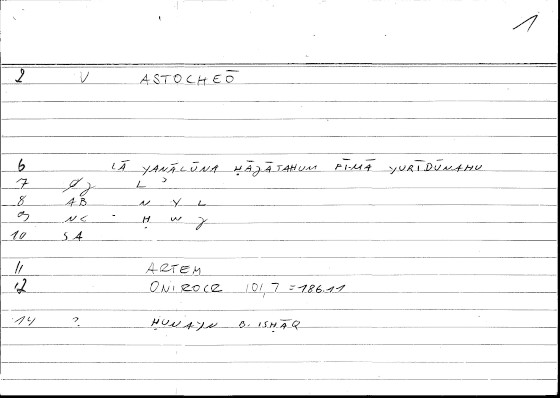 1
2 V ASTOCHEŌ
6 LĀ YANĀLŪNA ḤĀǦĀTAHUM FĪ-MĀ YURĪDŪNAHU
7 L ʾ
8 AB N Y L
9 NC - Ḥ W ǧ
10 SA
11 ARTEM
12 ONIROCR 101,7 = 186.11
14 ? ḤUNAYN B. ISḤĀQ